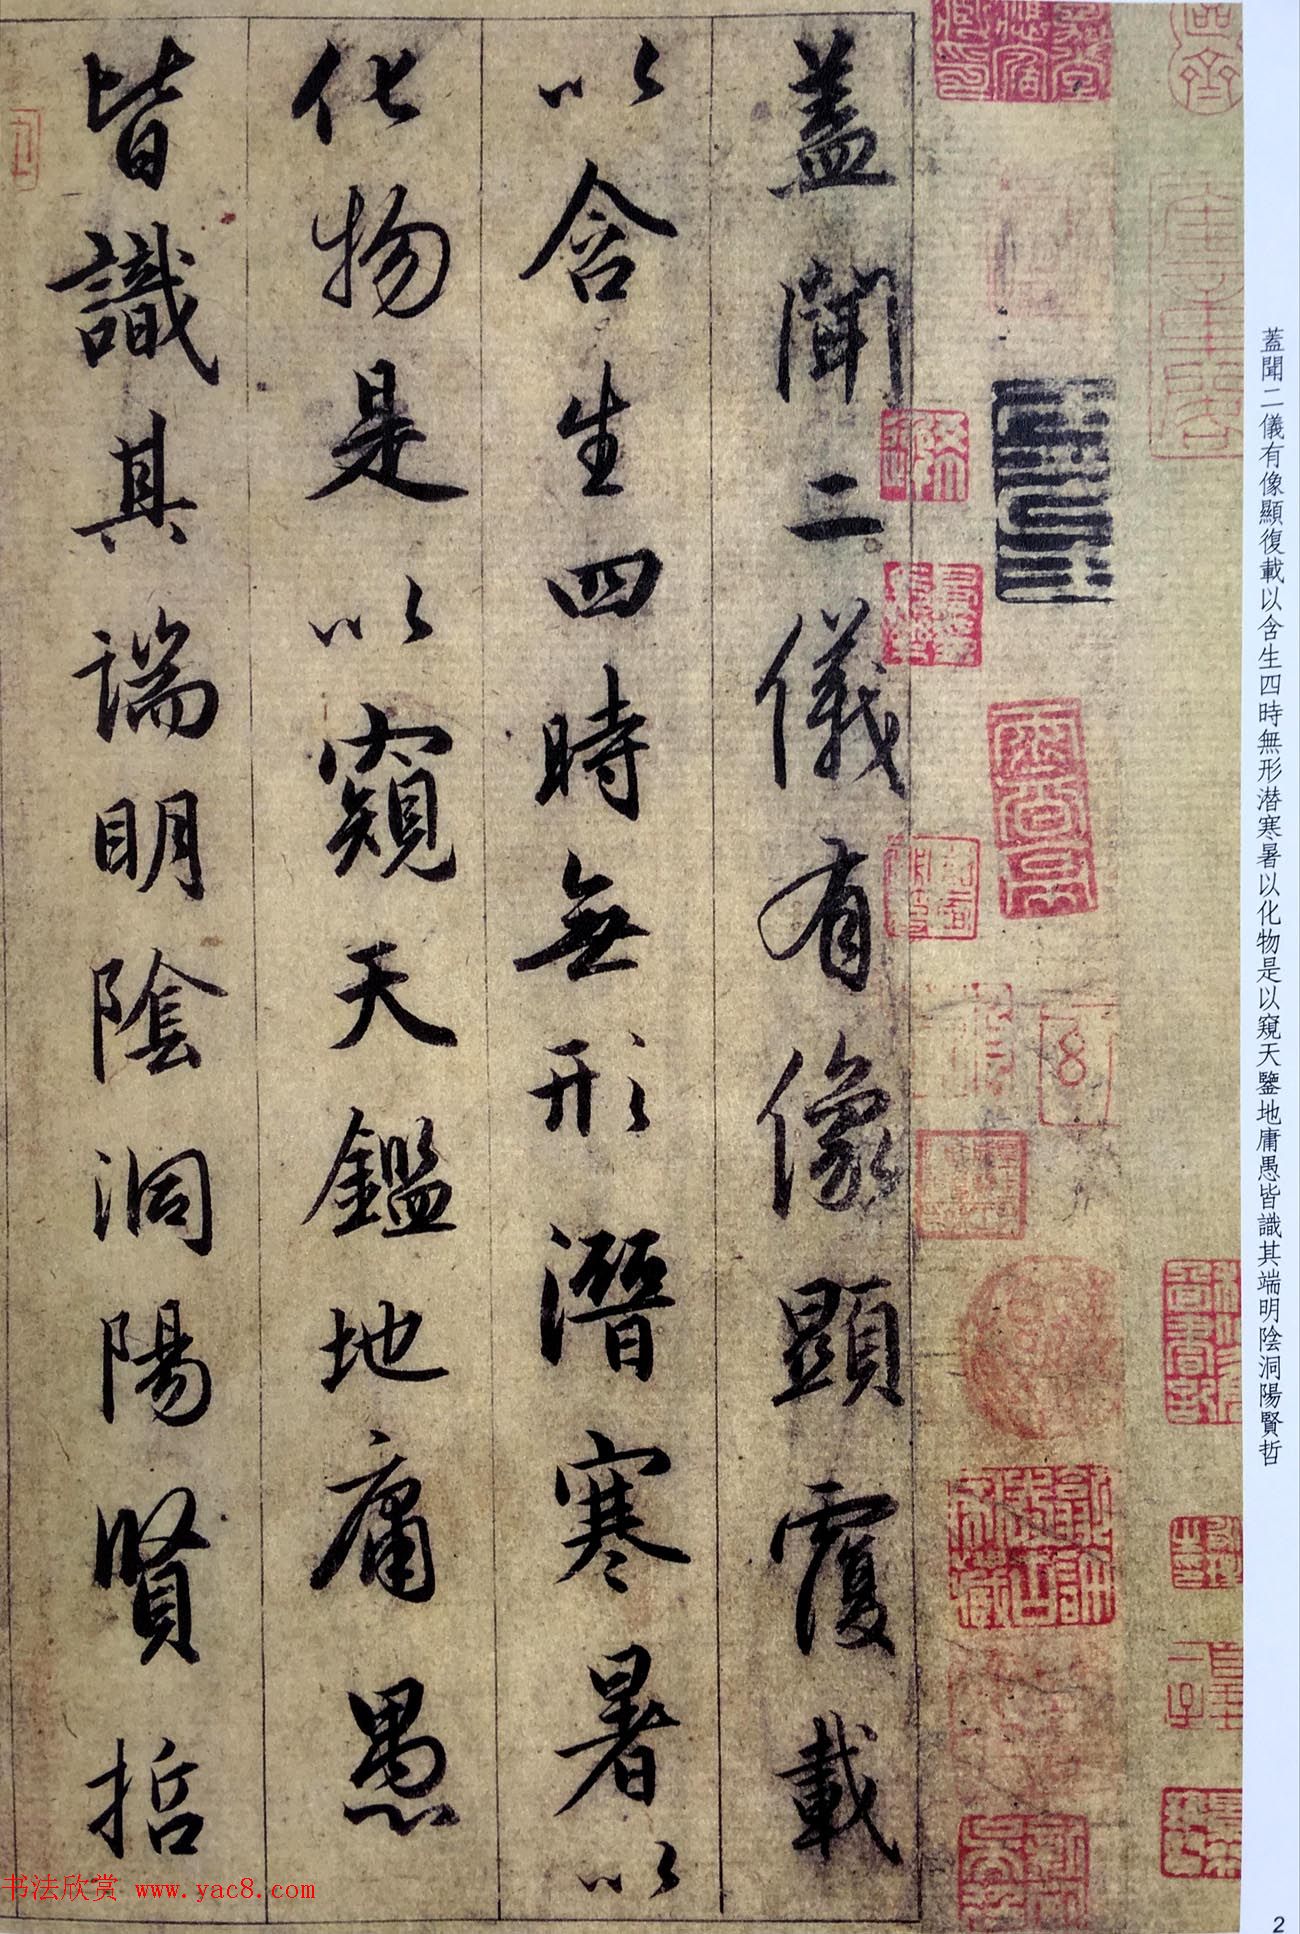 蓋聞二儀有像顯覆載
以含生四時無形潛寒暑以
化物是以窺天鑑地庸愚
皆識其端明陰洞陽賢哲
蓋聞二儀有像顯復載以含生四時無形潜寒暑以化物是以窺天鑒地庸愚皆識其端明陰洞陽賢哲
2
书法欣赏 www.yac8.com